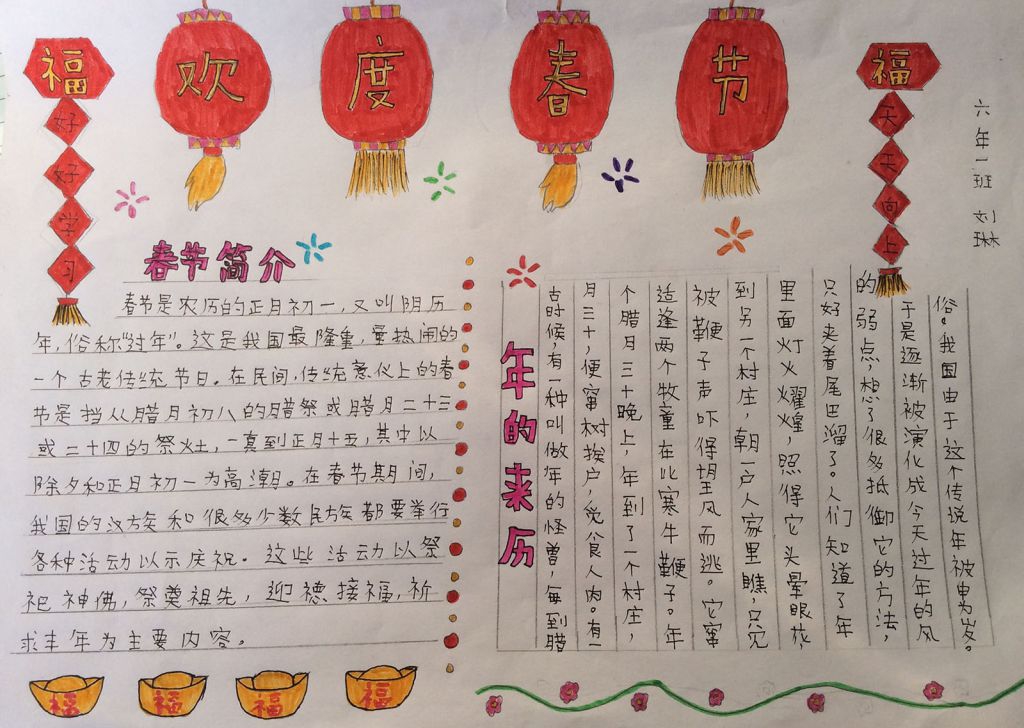 欢度春节
福
好好学习
福
天天向上
六年一班 刘琳
春节简介
春节是农历的正月初一,又叫阴历
年,俗称“过年”。这是我国最隆重,最热闹的
一个古老传统节日。在民间,传统意义上的春
节是挡从腊月初八的腊祭或腊月二十三
或二十四的祭灶,一真到正月十五,其中以
除夕和正月初一为高潮。在春节期间,
我国的汉族和很多少数民族都要举行
各种活动以示庆祝。这些活动以祭
祀神佛,祭奠祖先,迎德接福,祈
求丰年为主要内容。
福
福
福
福
年的来历
古时候,有一种叫做年的怪兽,每到腊
月三十,便窜村挨户,觅食人肉。有一
个腊月三十晚上,年到了一个村庄,
适逢两个牧童在比寒牛鞭子。年
被鞭子声吓得望风而逃。它窜
到另一个村庄,朝一户人家里瞧,只见
里面灯火耀煌,照得它头晕眼花,
只好夹着尾巴溜了。人们知道了年
的弱点,想了很多抵御它的方法,
于是逐渐被演化成今天过年的风
俗。我国由于这个传说年被申为岁。